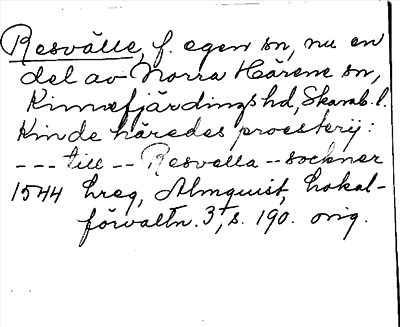 Resvälle, f. egen sn, nu en
del av Norra Härene sn,
Kinnefjärdings hd, Skarab. l.
Kinde häredes proesterij:
--- till -- Resvella -- sockner
1544 Ereg, Almquist, Lokal-
förvaltn. 3, s. 190. orig.